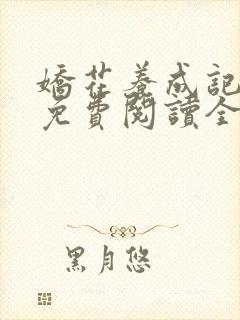 嬌花養成記
免費閱讀全
黑月悠